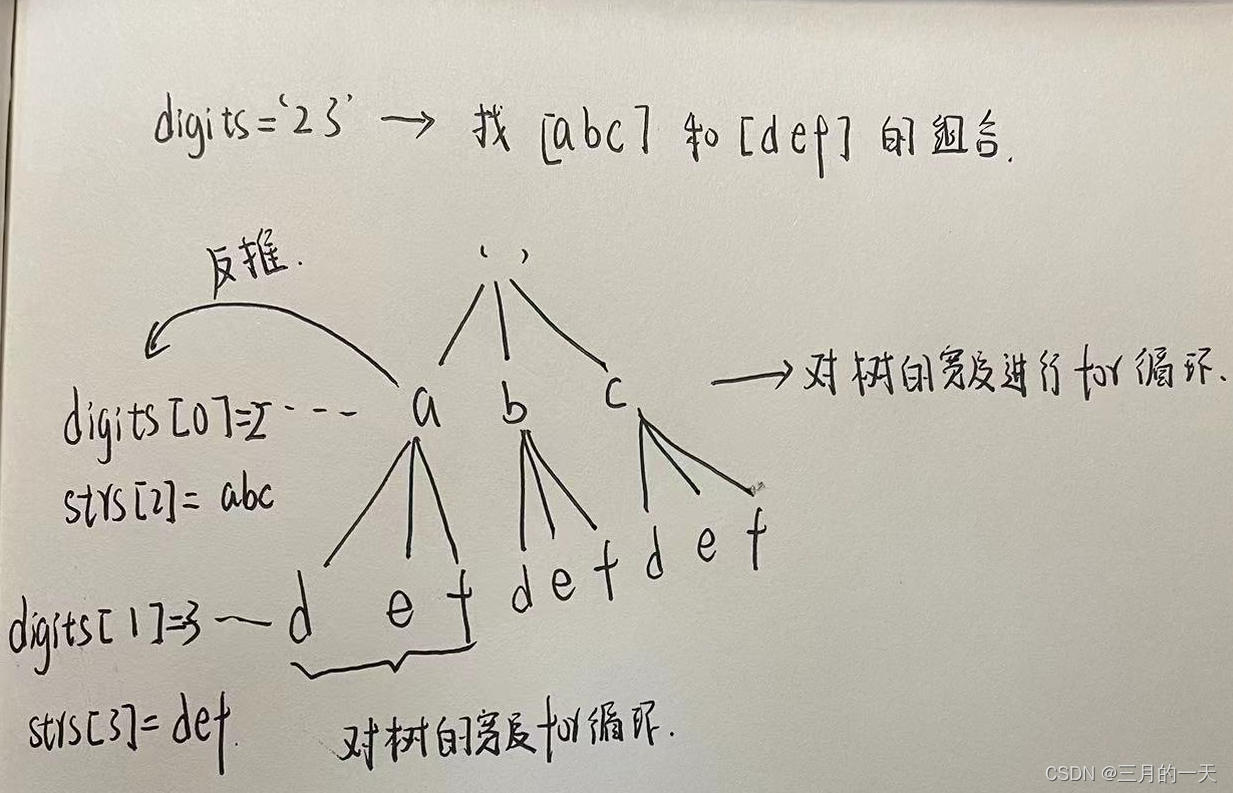 digits='23' → 找 [abc] 和 [def] 的组合.
反推.
' '
digits[0]=2 --- a b c → 对树的宽度进行for循环.
strs[2]= abc
digits[1]=3 — d e f d e f d e f
strs[3]= def.
对树的宽度for循环.
CSDN @三月的一天